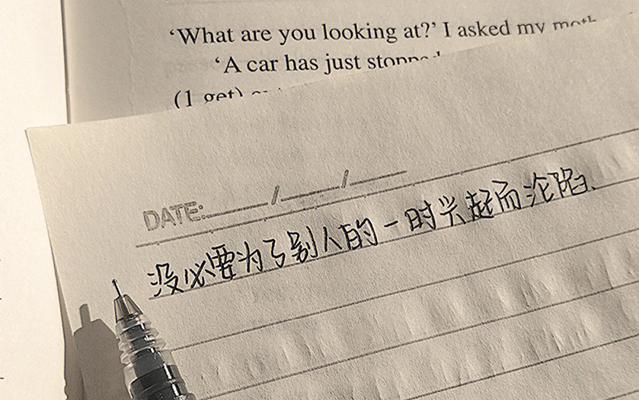 ‘What are you looking at?’ I asked my
‘A car has just
(1 get)
DATE: / /
没必要为了别人的一时兴起而沦陷.